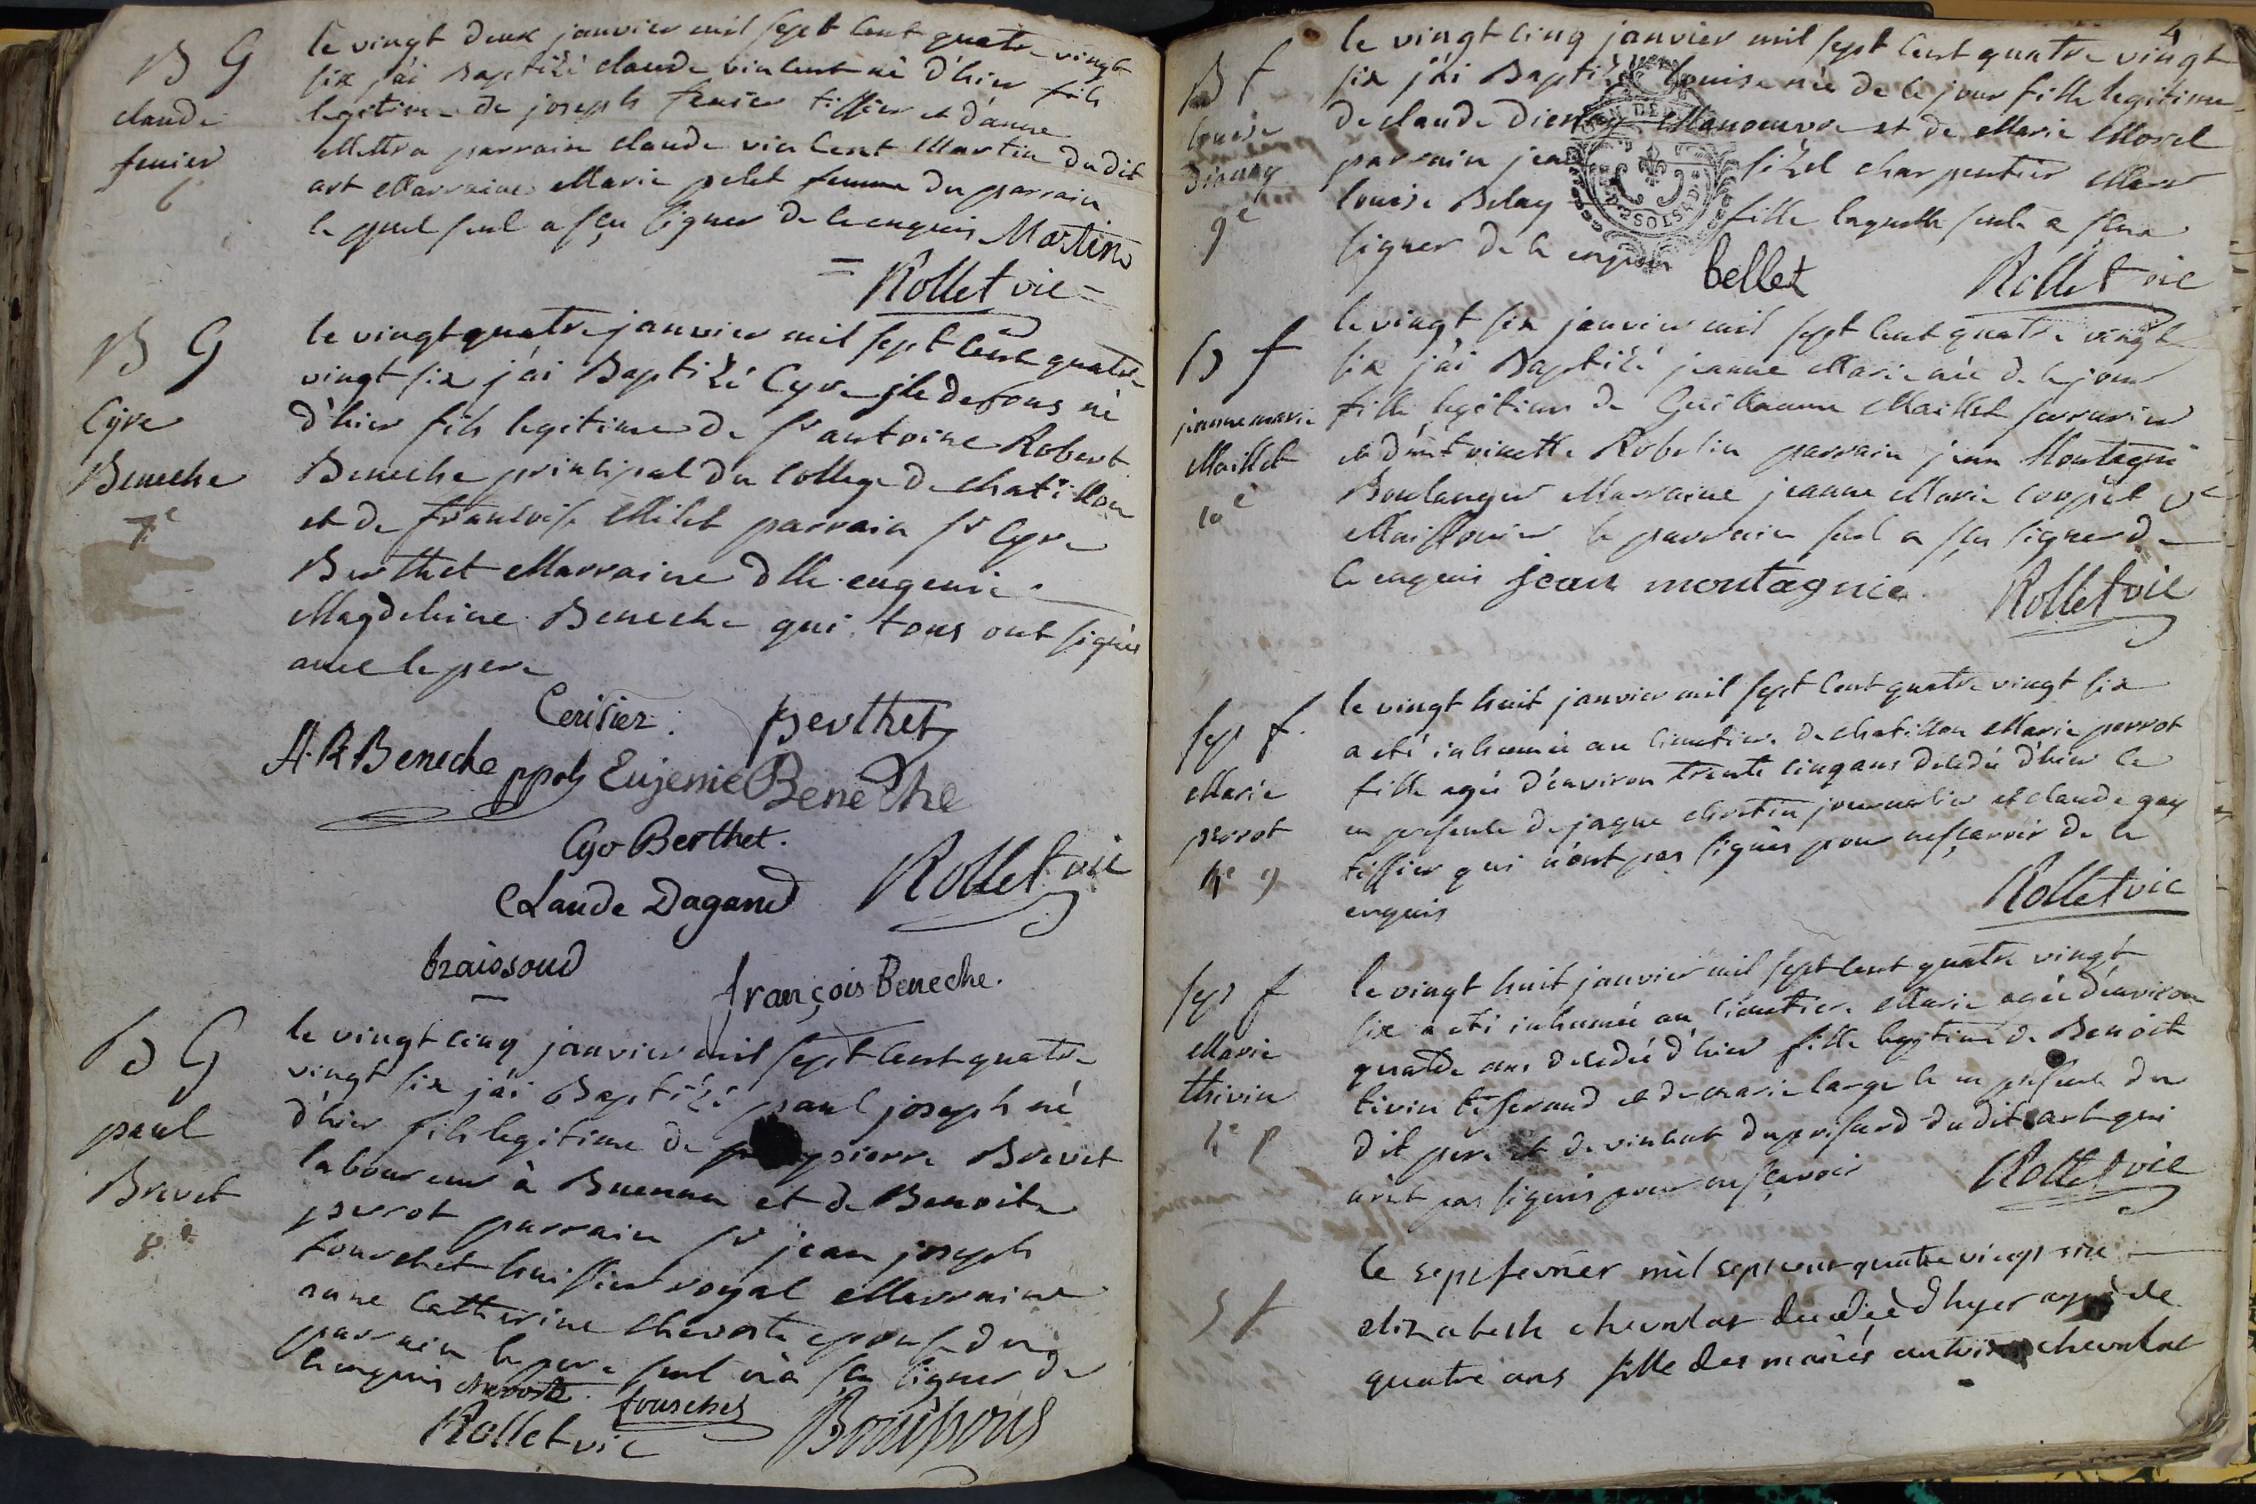 B G
claude
fenier
6
le vingt deux janvier mil sept cent quatre vingt
six j'ai Baptizé claude vincent né d'hier fils
legitime de joseph fenier tissier et d'anne
Mettra parrain claude vincent Martin du dit
art Marraine Marie pelet femme du parrain
le quel seul a sçu signer de ce enquis Martin
Rollet vic
B G
Cyre
Beneche
7e
le vingt quatre janvier mil sept cent quatre
vingt six j'ai Baptizé Cyre né
d'hier fils legitime de sr antoine Robert
Beneche principal du College de chatillon
et de francoise Milet parrain sr Cyre
Berthet Marraine dlle eugenie
Magdeleine Beneche qui tous ont signés
avec le pere
Cerisier Berthet
A. R. Beneche ppal Eujenie Beneche
Cyr Berthet.
Claude Dagand Rollet vic
braissoud
françois Beneche.
B G
paul
Brevet
8e
le vingt cinq janvier mil sept cent quatre
vingt six j'ai Baptizé paul joseph né
d'hier fils legitime de pierre Brevet
laboureur à Buenan et de Benoite
perrot parrain sr jean joseph
fourchet huissier royal Marraine
anne Catherine chevoste epouse du
parrain le pere seul n'a sçu signer de
ce enquis chevoste fourchet
Rollet vic
4
B f
louise
Diannay
9e
le vingt cinq janvier mil sept cent quatre vingt
six j'ai Baptizé louise née de ce jour fille legitime
de claude Manoeuvre et de Marie Morel
parrain jean charpentier Marr
louise Belay fille laquelle seule a sceu
signer de ce enquis bellet Rollet vic
B f
jeanne marie
Maillet
10e
le vingt six janvier mil sept cent quatre vingt
six j'ai Baptizé jeanne Marie née de ce jour
fille legitime de Guillaume Maillet serrurier
et d'antoinette Robelin parrain jean Montagnie
Boulanger Marraine jeanne Marie Corpet ve
Maissonier le parrain seul a sçu signer de
ce enquis jean montagnie Rollet vic
sep f
Marie
perrot
le vingt huit janvier mil sept cent quatre vingt six
a eté inhumée au cimetiere de chatillon Marie perrot
fille agée d'environ trente cinq ans decedée d'hier ce
en presence de jaque chretin journalier et claude gay
tissier qui n'ont pas signés pour ne sçavoir de ce
enquis Rollet vic
sep f
Marie
thivin
le vingt huit janvier mil sept cent quatre vingt
six a eté inhumée au cimetiere Marie agée d'environ
quatre ans decedée d'hier fille legitime de Benoit
tivin tisserand et de marie large ce en presence du
dit pere et de vincent du dit art qui
n'ont pas signés pour ne sçavoir Rollet vic
S f
le sept fevrier mil sept cent quatre vingt six
elizabeth chevalat decedée d'hyer agée de
quatre ans fille des mariés antoine chevalat